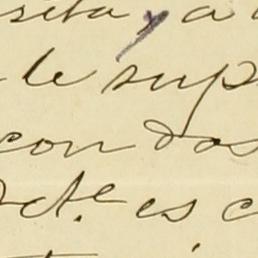 sita, a
le sup
con dos
Oct.e es c